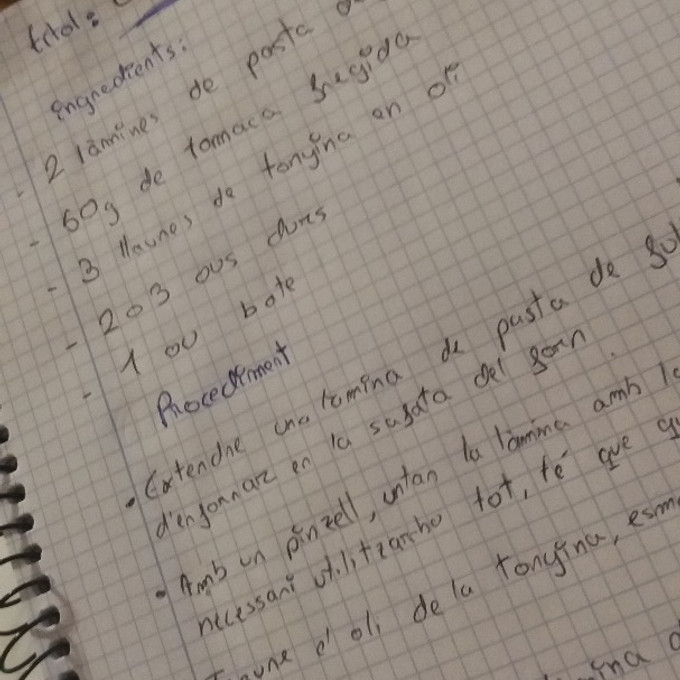 titol:
Ingredients:
- 2 làmines de pasta
- 60g de tomaca fregida
- 3 llaunes de tonyina en oli
- 2 o 3 ous durs
- 1 ou bate
Procediment
• Extendre una lamina de pasta de
d'enfornar en la safata del forn.
• Amb un pinzell, untan la làmina amb
necessari utilitzarho tot, té que
d'oli de la tonyina,